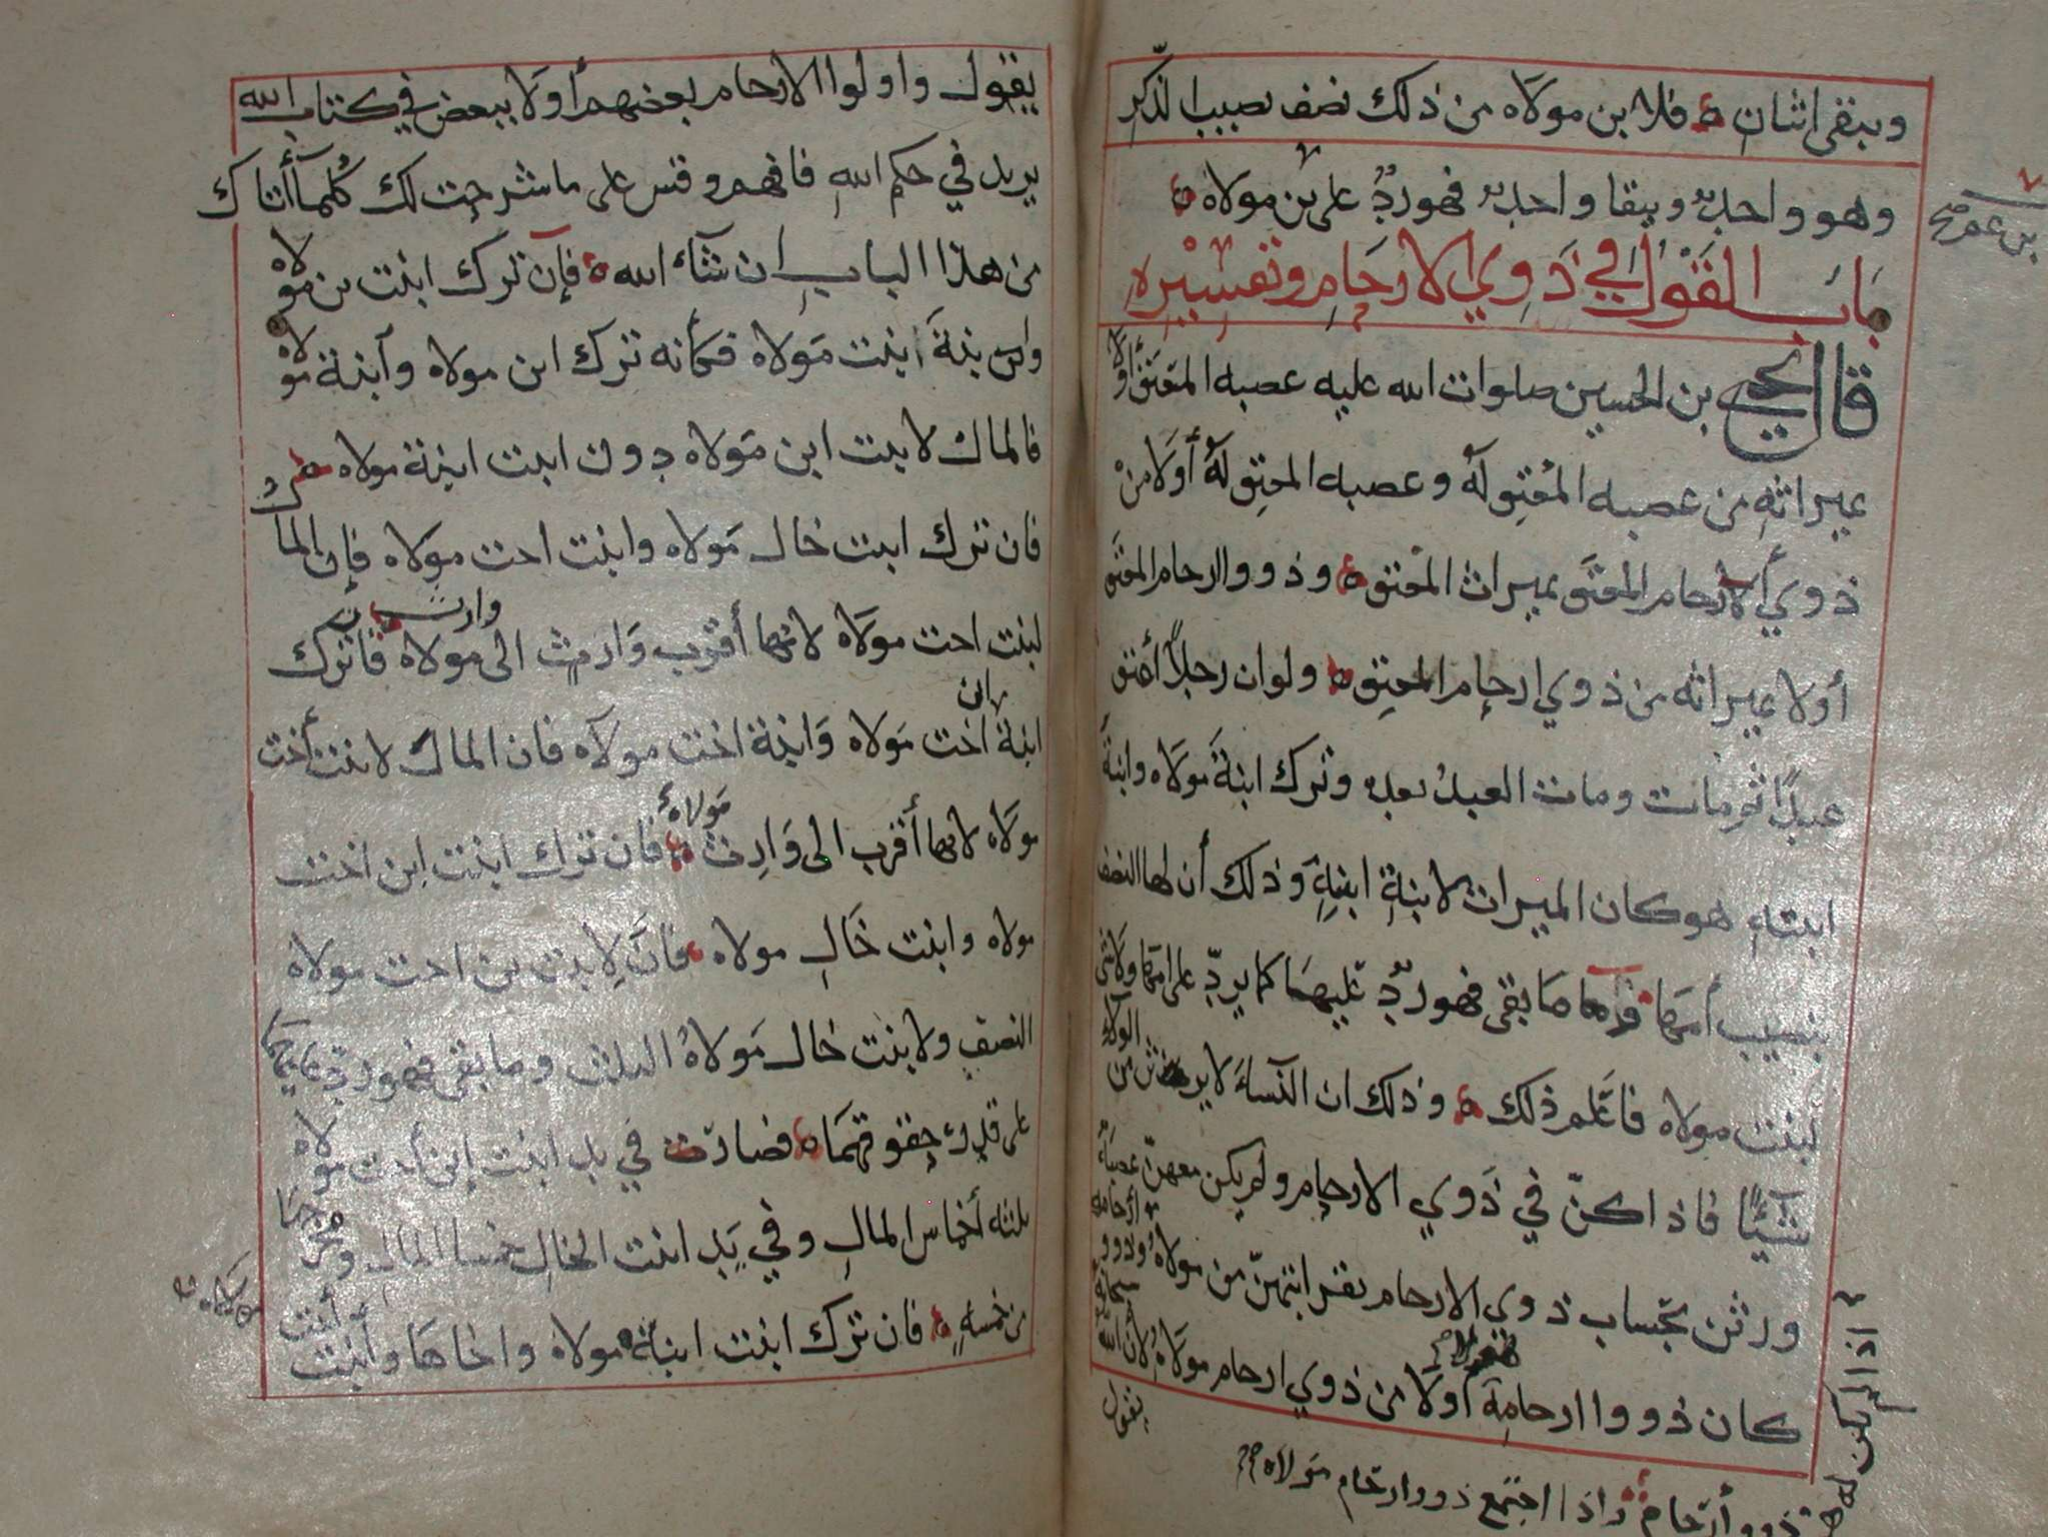 ويبقى اثنان فلابن مولاه من ذلك نصف نصيب الذكر
وهو واحد ويبقا واحد فهو ردٌّ على بن مولاه
بن عم صح
باب القول في ذوي الارحام وتفسيره
قال يحيى بن الحسين صلوات الله عليه عصبه المعتق أولا
بميراثه من عصبه المعتق له وعصبه المعتق له أولا من
ذوي أرحام المعتق بميراث المعتق وذووا ارحام المعتق
أولا بميراثه من ذوي ارحام المعتق ولو ان رجلاً أعتق
عبدًا ثم مات ومات العبد بعده وترك ابنة مولاه وابنة
ابنته هو كان الميراث لابنة ابنته وذلك أن لها النصف
بنصيب أمها فما بقى فهو ردٌّ عليها كما يردّ على امها ولا شى
لبنت مولاه فاعلم ذلك وذلك ان النسآء لا يرثن من الولاء
شيئًا فاذا كنّ في ذوي الارحام ولم يكن معهنّ عصبة
ورثن بحساب ذوي الارحام بقرابتهنّ من مولاه وذووا أرحامه
كان ذووا ارحامه أولا من ذوي ارحام مولاه لأن الله سبحانه
يقول
اذا لم يكن له
ذووا أرحام واذا اجتمع ذووا ارحام مولاه
يقول واولوا الارحام بعضهم أولا ببعض في كتاب الله
يريد في حكم الله فافهم وقس على ما شرحت لك كلمآ أتاك
من هذا الباب ان شآء الله فإن ترك ابنت بن مولاه
وابنة ابنت مولاه فكأنه ترك ابن مولاه وابنة مولاه
فالمال لابنت ابن مولاه دون ابنت ابنة مولاه
فان ترك ابنت خال مولاه وابنت اخت مولاه فإن المال
لبنت اخت مولاه لانها أقرب وارث الى مولاه فان ترك
ابنة اخت مولاه وابنة ابن اخت مولاه فان المال لابنت أخت
مولاه لانها أقرب الى وارث مولاه فان ترك ابنت ابن اخت
مولاه وابنت خال مولاه فان لابنت بن اخت مولاه
النصف ولابنت خال مولاه الثلث وما بقى فهو ردّ عليهما
على قدر حقوقهما فصارت في يد ابنت ابن أخت مولاه
ثلثه أخماس المال وفي يد ابنت الخال خمسا المال ومخرجها
من خمسةٍ فان ترك ابنت ابنة مولاه واخاها وأبنت أخت
مولاه